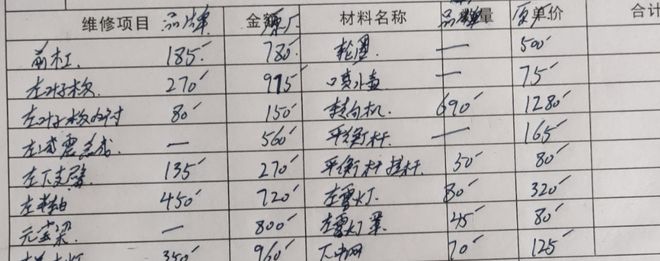 维修项目 品牌 金额 原厂 材料名称 品牌 量 原单价 合计
前杠 185 780 轮圈 — 500
左叶子板 270 915 喷水壶 — 75
左叶子板内衬 80 150 转向机 690 1280
左减震总成 — 560 平衡杆 — 165
左下支臂 135 270 平衡杆拉杆 50 80
左半轴 450 720 左雾灯 80 320
元宝梁 — 800 左雾灯罩 45 80
350 960 下中网 70 125